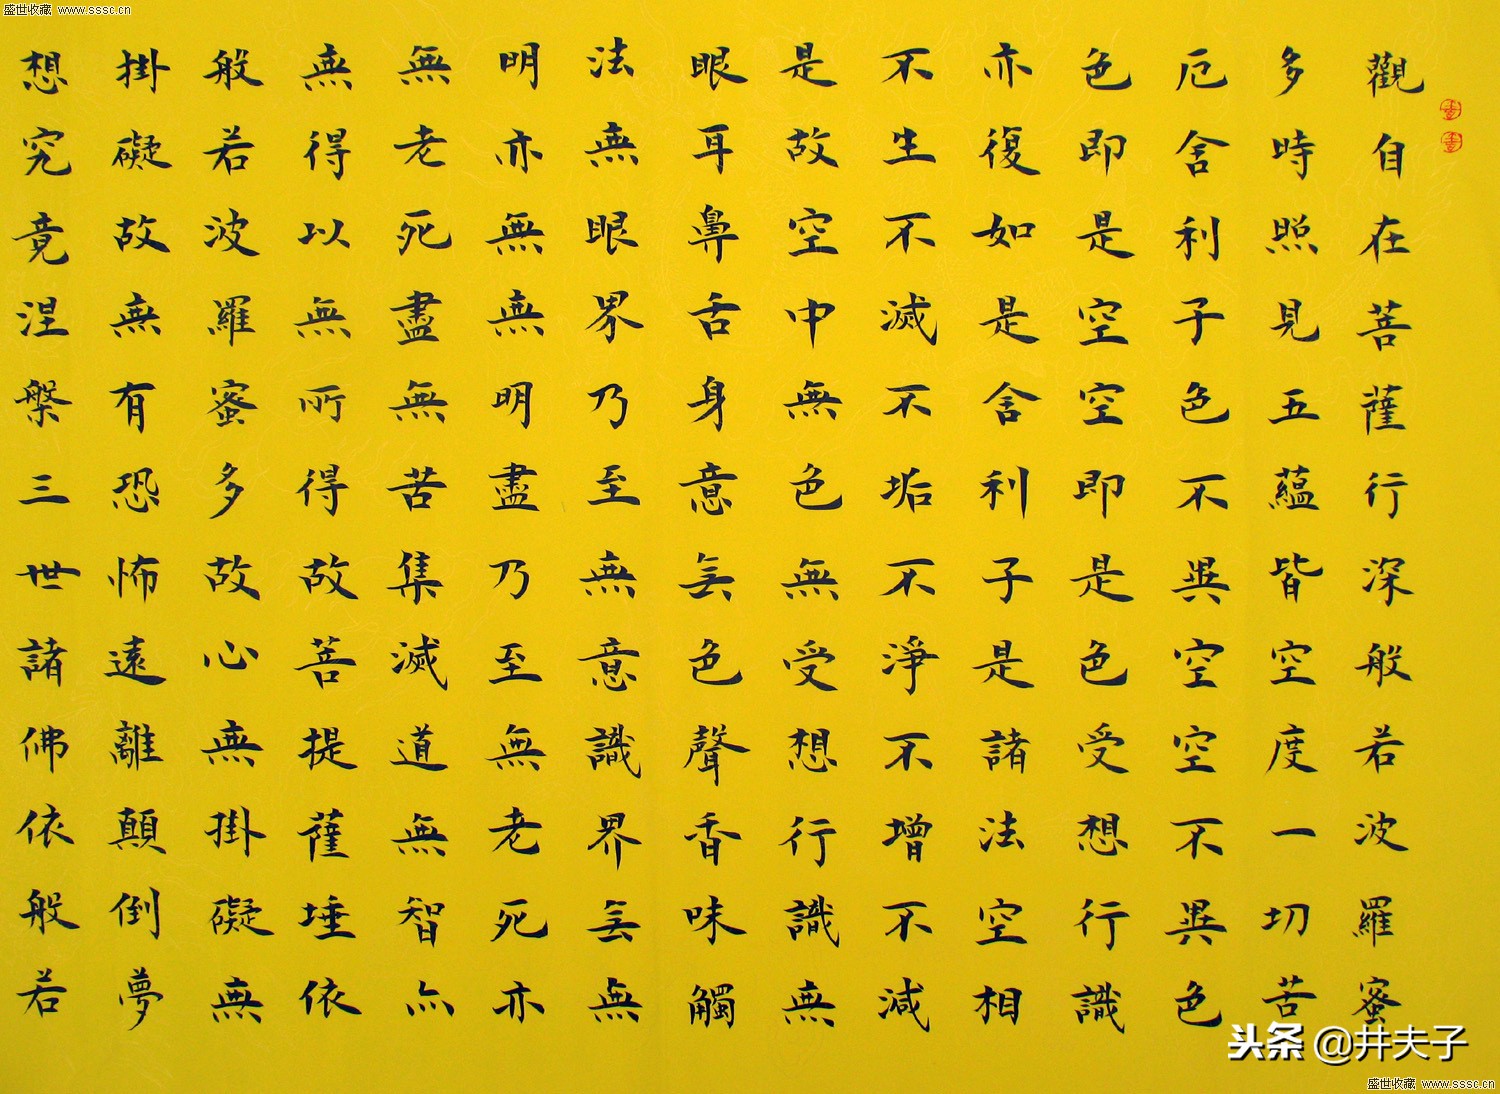 盛世收藏 www.sssc.cn
觀自在菩薩行深般若波羅蜜
多時照見五蘊皆空度一切苦
厄舍利子色不異空空不異色
色即是空空即是色受想行識
亦復如是舍利子是諸法空相
不生不滅不垢不淨不增不減
是故空中無色無受想行識無
眼耳鼻舌身意無色聲香味觸
法無眼界乃至無意識界無無
明亦無無明盡乃至無老死亦
無老死盡無苦集滅道無智亦
無得以無所得故菩提薩埵依
般若波羅蜜多故心無掛礙無
掛礙故無有恐怖遠離顛倒夢
想究竟涅槃三世諸佛依般若
头条 @井夫子
盛世收藏 www.sssc.cn